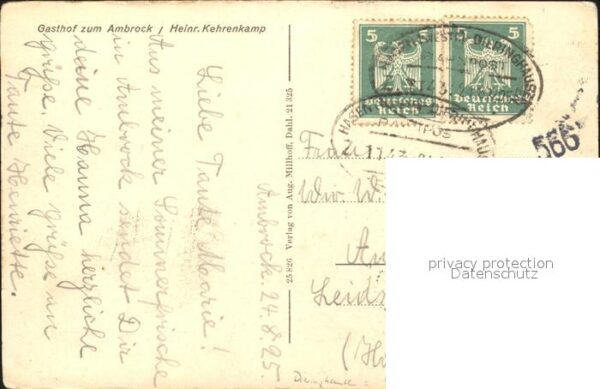 Gasthof zum Ambrock / Heinr. Kehrenkamp
Ambrock. 24.8.25.
Liebe Tante Marie!
Aus meiner Sommerfrische
in Ambrock sendet Dir
deine Hanna herzliche
Grüße. Viele Grüße an
Tante Henriette.
25826 Verlag von Aug. Millhoff, Dahl. 21325
5 5
Deutsches Reich
Deutsches Reich
DIERINGHAUSEN
HAGEN
BAHNPOST
566
Frau
Ww. W
Leids
privacy protection
Datenschutz
Dieringhausen